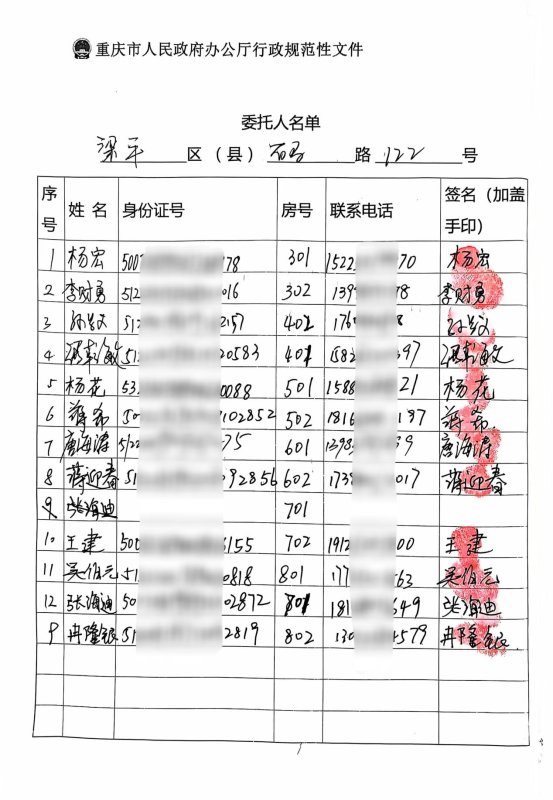 重庆市人民政府办公厅行政规范性文件
委托人名单
梁平 区（县） 路 122 号
序号 姓名 身份证号 房号 联系电话 签名（加盖手印）
1 杨宏 500 78 301 1522 70 杨宏
2 李财勇 512 016 302 139 78 李财勇
3 孙 51 2157 402 176 8 孙
4 敏 51 20583 401 1582 397 敏
5 杨花 53 0088 501 1588 21 杨花
6 蒋 50 102852 502 1816 137 蒋
7 唐海涛 512 75 601 1398 39 唐海涛
8 蒋迎春 51 092856 602 173 017 蒋迎春
9 张海迪 701
10 王建 500 6155 702 1912 00 王建
11 吴 元 51 0818 801 177 63 吴 元
12 张海迪 50 02872 701 181 649 张海迪
9 冉隆银 51 2819 802 130 4579 冉隆银